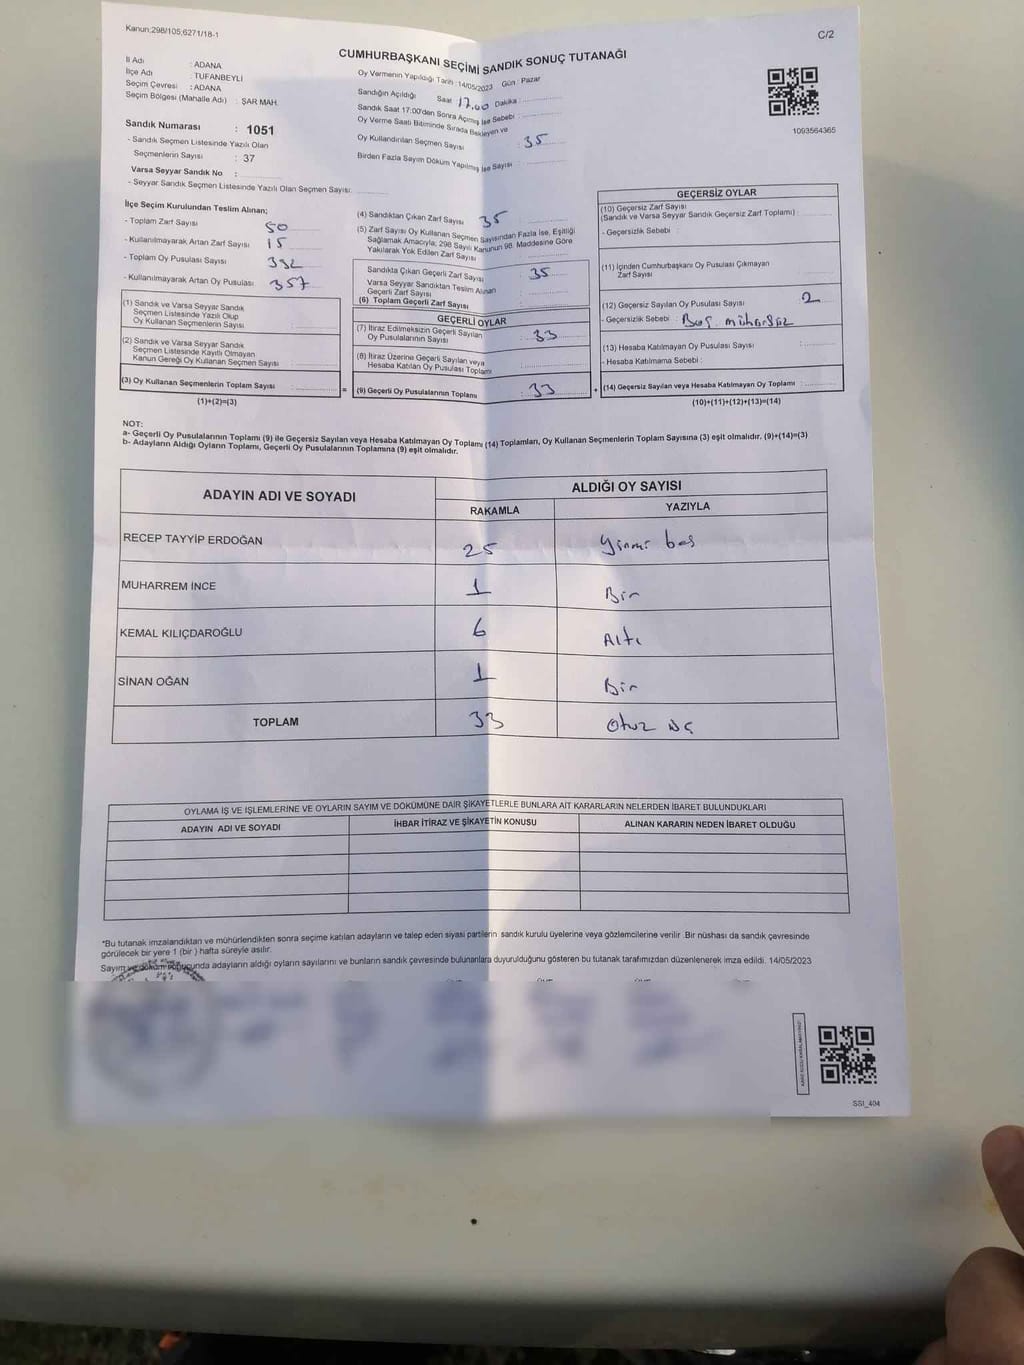 Kanun;298/105;6271/18-1
C/2
CUMHURBAŞKANI SEÇİMİ SANDIK SONUÇ TUTANAĞI
İl Adı : ADANA
İlçe Adı : TUFANBEYLİ
Seçim Çevresi : ADANA
Seçim Bölgesi (Mahalle Adı) : ŞAR MAH.
Sandık Numarası : 1051
- Sandık Seçmen Listesinde Yazılı Olan
Seçmenlerin Sayısı : 37
Varsa Seyyar Sandık No :
- Seyyar Sandık Seçmen Listesinde Yazılı Olan Seçmen Sayısı:
Oy Vermenin Yapıldığı Tarih :14/05/2023 Gün : Pazar
Sandığın Açıldığı Saat : 17.00 Dakika :
Sandık Saat 17:00'den Sonra Açılmış İse Sebebi :
Oy Verme Saati Bitiminde Sırada Bekleyen ve
Oy Kullandırılan Seçmen Sayısı : 35
Birden Fazla Sayım Döküm Yapılmış İse Sayısı :
1093564365
İlçe Seçim Kurulundan Teslim Alınan;
- Toplam Zarf Sayısı : 50
- Kullanılmayarak Artan Zarf Sayısı : 15
- Toplam Oy Pusulası Sayısı :
- Kullanılmayarak Artan Oy Pusulası : 357
(1) Sandık ve Varsa Seyyar Sandık
Seçmen Listesinde Yazılı Olup
Oy Kullanan Seçmenlerin Sayısı :
(2) Sandık ve Varsa Seyyar Sandık
Seçmen Listesinde Kayıtlı Olmayan
Kanun Gereği Oy Kullanan Seçmen Sayısı :
(3) Oy Kullanan Seçmenlerin Toplam Sayısı : =
(1)+(2)=(3)
(4) Sandıktan Çıkan Zarf Sayısı : 35
(5) Zarf Sayısı Oy Kullanan Seçmen Sayısından Fazla İse, Eşitliği
Sağlamak Amacıyla; 298 Sayılı Kanunun 98. Maddesine Göre
Yakılarak Yok Edilen Zarf Sayısı :
Sandıkta Çıkan Geçerli Zarf Sayısı : 35
Varsa Seyyar Sandıktan Teslim Alınan
Geçerli Zarf Sayısı :
(6) Toplam Geçerli Zarf Sayısı :
GEÇERLİ OYLAR
(7) İtiraz Edilmeksizin Geçerli Sayılan
Oy Pusulalarının Sayısı : 33
(8) İtiraz Üzerine Geçerli Sayılan veya
Hesaba Katılan Oy Pusulası Toplamı :
(9) Geçerli Oy Pusulalarının Toplamı : 33 +
GEÇERSİZ OYLAR
(10) Geçersiz Zarf Sayısı
(Sandık ve Varsa Seyyar Sandık Geçersiz Zarf Toplamı) :
- Geçersizlik Sebebi :
(11) İçinden Cumhurbaşkanı Oy Pusulası Çıkmayan
Zarf Sayısı :
(12) Geçersiz Sayılan Oy Pusulası Sayısı : 2
- Geçersizlik Sebebi : Boş mühürsüz
(13) Hesaba Katılmayan Oy Pusulası Sayısı :
- Hesaba Katılmama Sebebi :
(14) Geçersiz Sayılan veya Hesaba Katılmayan Oy Toplamı :
(10)+(11)+(12)+(13)=(14)
NOT:
a- Geçerli Oy Pusulalarının Toplamı (9) ile Geçersiz Sayılan veya Hesaba Katılmayan Oy Toplamı (14) Toplamları, Oy Kullanan Seçmenlerin Toplam Sayısına (3) eşit olmalıdır. (9)+(14)=(3)
b- Adayların Aldığı Oyların Toplamı, Geçerli Oy Pusulalarının Toplamına (9) eşit olmalıdır.
ADAYIN ADI VE SOYADI ALDIĞI OY SAYISI
RAKAMLA YAZIYLA
RECEP TAYYİP ERDOĞAN 25 Yirmi beş
MUHARREM İNCE 1 Bir
KEMAL KILIÇDAROĞLU 6 Altı
SİNAN OĞAN 1 Bir
TOPLAM 33 Otuz üç
OYLAMA İŞ VE İŞLEMLERİNE VE OYLARIN SAYIM VE DÖKÜMÜNE DAİR ŞİKAYETLERLE BUNLARA AİT KARARLARIN NELERDEN İBARET BULUNDUKLARI
ADAYIN ADI VE SOYADI İHBAR İTİRAZ VE ŞİKAYETİN KONUSU ALINAN KARARIN NEDEN İBARET OLDUĞU
*Bu tutanak imzalandıktan ve mühürlendikten sonra seçime katılan adayların ve talep eden siyasi partilerin sandık kurulu üyelerine veya gözlemcilerine verilir .Bir nüshası da sandık çevresinde
görülecek bir yere 1 (bir ) hafta süreyle asılır.
Sayım ve döküm sonucunda adayların aldığı oyların sayılarını ve bunların sandık çevresinde bulunanlara duyurulduğunu gösteren bu tutanak tarafımızdan düzenlenerek imza edildi. 14/05/2023
SSI_404